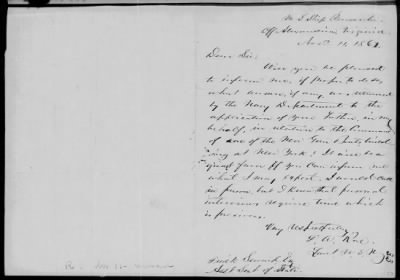 U.S. Ship
Off Alexandria Virginia
Nov. 11, 186
Dear Sir:
Will you be pleased
to inform me, if proper to do so,
what answer, if any, was returned
by the Navy Department to the
application of your Father, in my
behalf, in relation to the Command
of one of the New Gun Boats, build-
ing at New York? It will be a
great favor if you can inform me
what I may expect. I would call
in person, but I know that personal
interviews require time which
is precious.
Very Respectfully
Lieut U.S.N.
Seward Esq
Asst Sect of State.